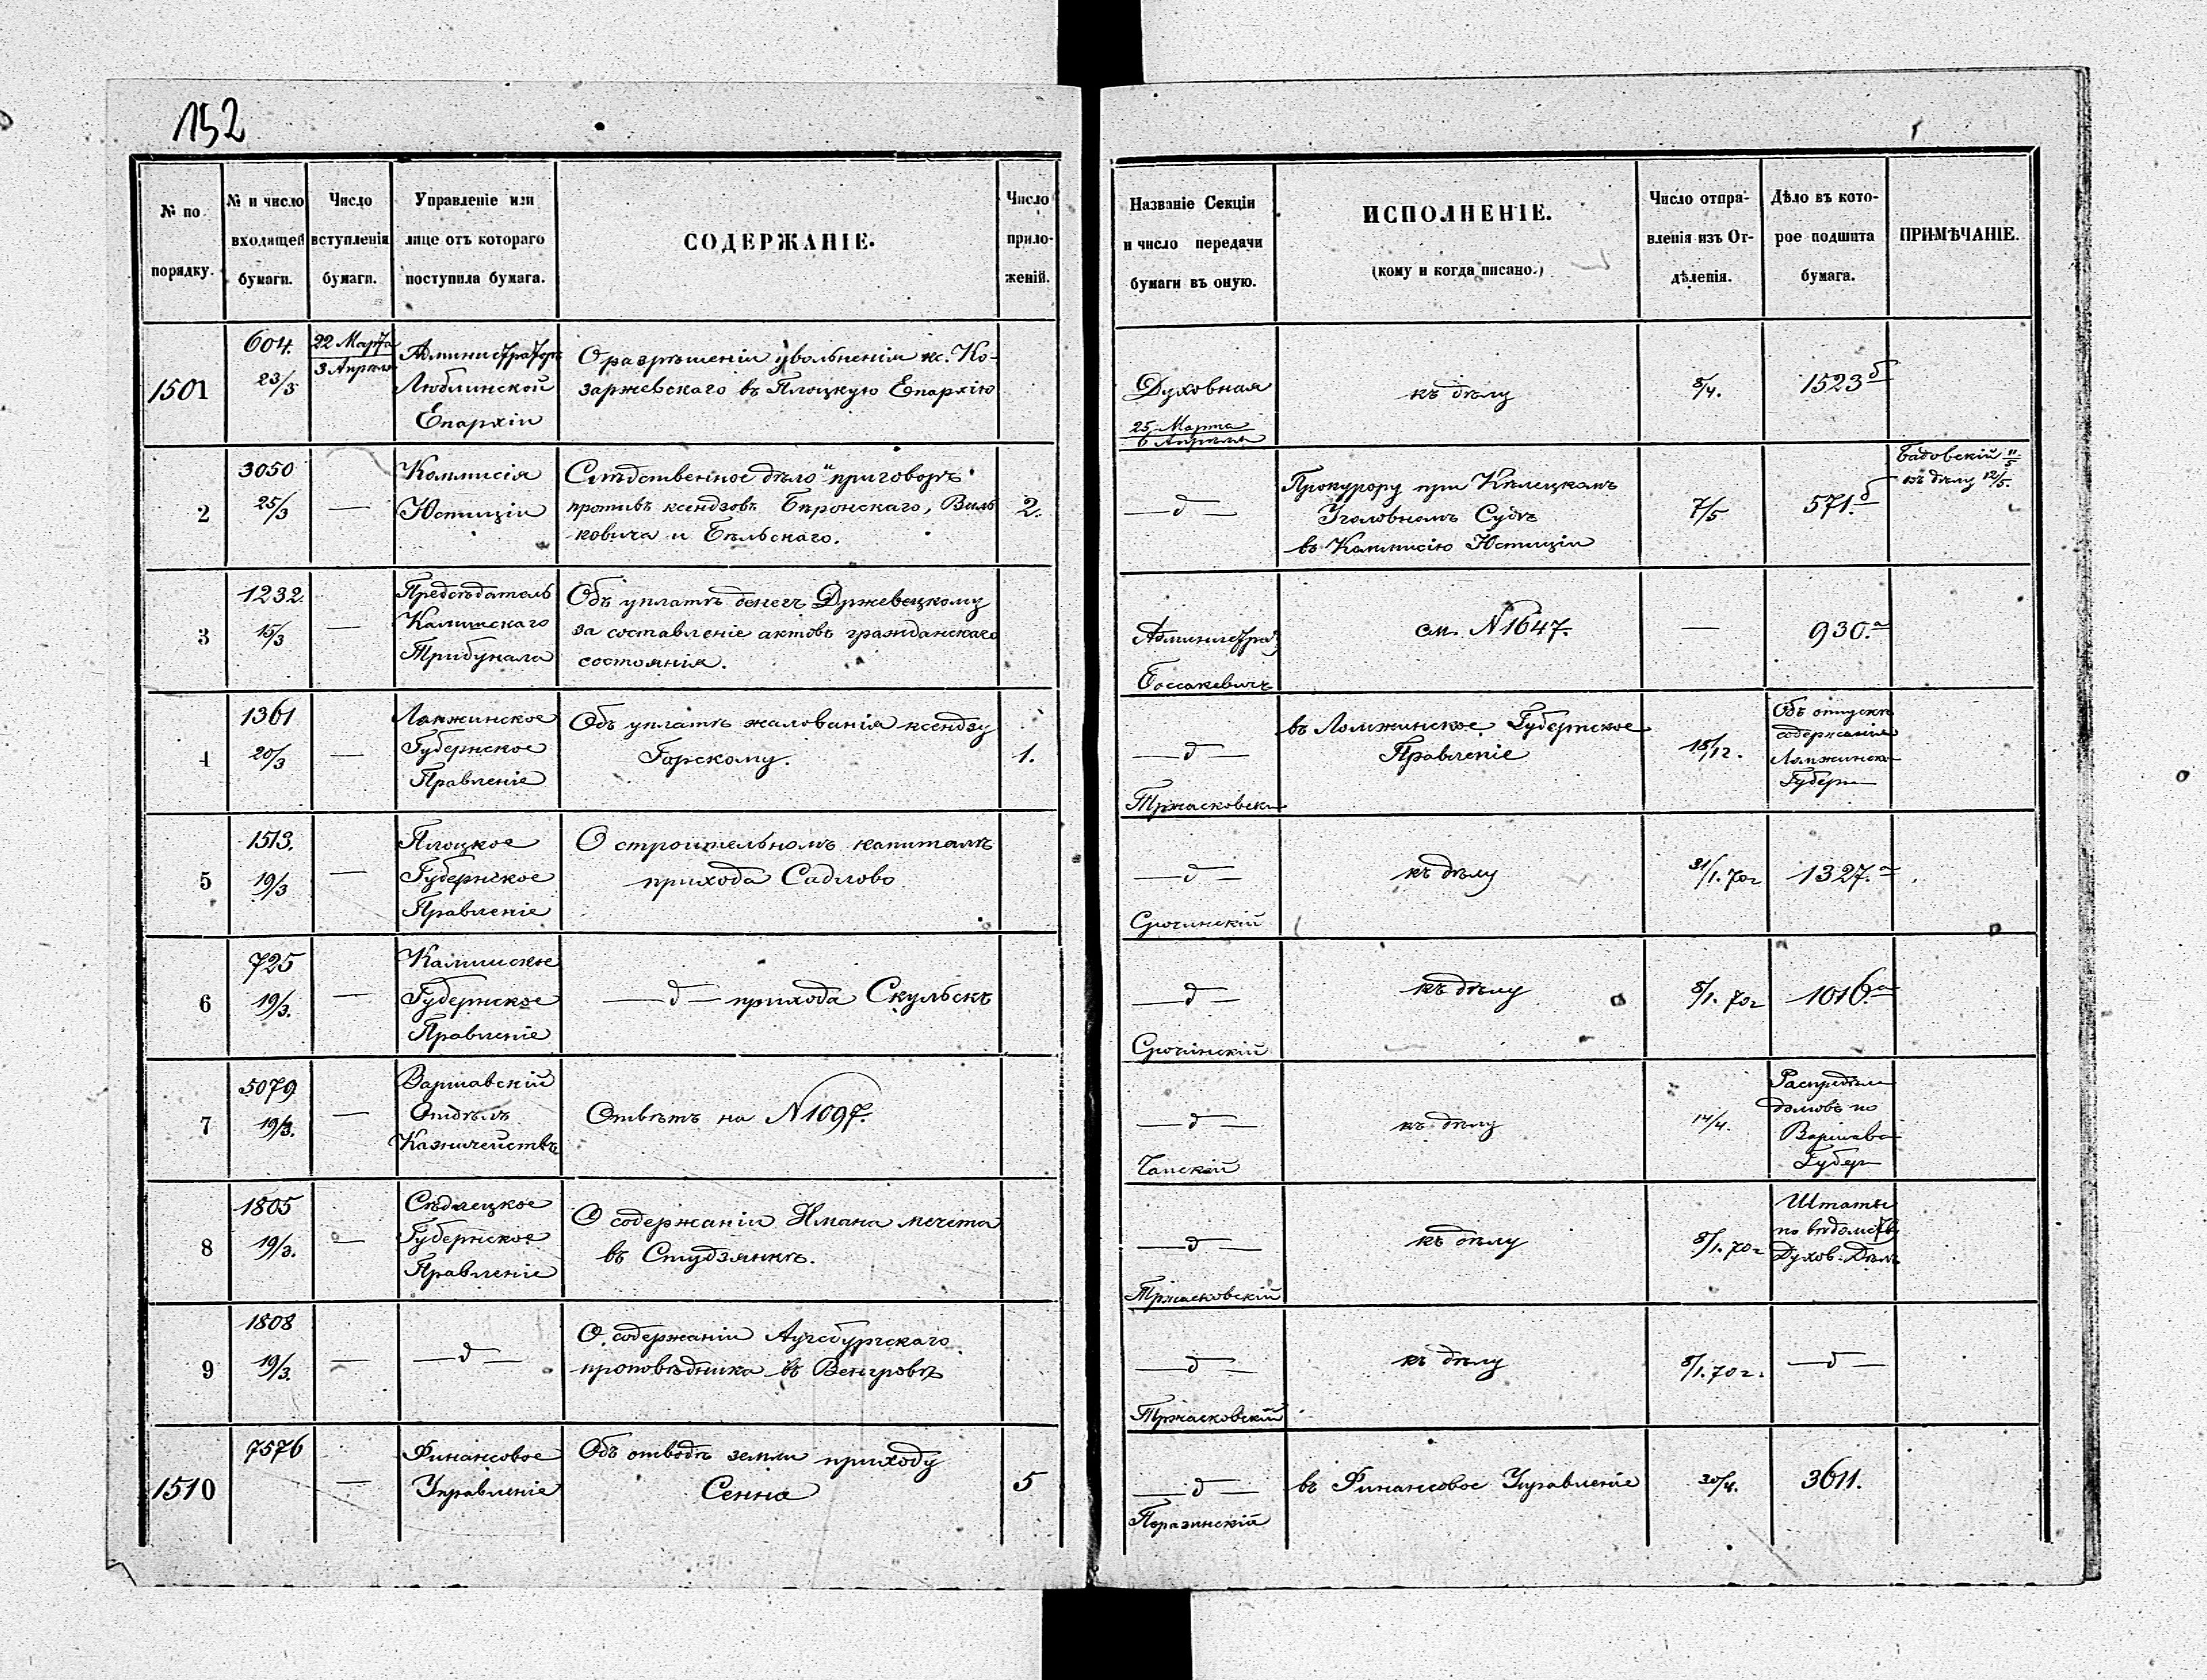 152
№ по порядку.
№ и число входящей бумаги.
Число вступленія бумаги.
Управленіе или лице отъ котораго поступила бумага.
СОДЕРЖАНІЕ.
Число приложеній.
Названіе Секціи и число передачи бумаги въ оную.
ИСПОЛНЕНІЕ.
(кому и когда писано.)
Число отправленія изъ Отдѣленія.
Дѣло въ которое подшита бумага.
ПРИМѢЧАНІЕ.
1501
604.
23/3
22 Марта
3 Апрѣля
Администраторъ
Люблинской
Епархіи
О разрѣшеніи увольненіи кс. Ко-
заржевскаго въ Плоцкую Епархію
Духовная
25 Марта
6 Апрѣля
къ дѣлу
8/4.
1523 б
2
3050
25/3
—
Коммисія
Юстиціи
Слѣдственное дѣло и приговоръ
противъ ксендзовъ Биронскаго, Виль
ковича и Бѣльскаго.
2.
— d —
Прокурору при Кѣлецкомъ
Уголовномъ Судѣ
въ Коммисію Юстиціи
7/5
571. б
Бадовскій 11/5
къ дѣлу 12/5.
3
1232.
15/3
—
Предсѣдатель
Калишскаго
Трибунала
Объ уплатѣ денегъ Држевецкому
за составленіе актовъ гражданскаго
состоянія.
Администрат
Боссакевичъ
см. N 1647.
—
930. а
4
1361
20/3
—
Ломжинское
Губернское
Правленіе
Объ уплатѣ жалованія ксендзу
Горскому.
1.
— d —
Тржасковски
въ Ломжинское Губернское
Правленіе
18/12.
Объ отпускѣ
содержанія
Ломжинск
Губерн
5
1513.
19/3
—
Плоцкое
Губернское
Правленіе
О строительномъ капиталѣ
прихода Садлово
— d —
Срочинскій
къ дѣлу
31/1. 70 г
1327. а
6
725
19/3.
—
Калишское
Губернское
Правленіе
— d — прихода Скульскъ
— d —
Срочинскій
къ дѣлу
8/1. 70 г
1016. а
7
5079
19/3.
—
Варшавскій
Отдѣлъ
Казначействъ
Отвѣтъ на N 1097.
— d —
Чапскій
къ дѣлу
14/4.
по
Варшавс
Губер
8
1805
19/3.
—
Сѣдлецкое
Губернское
Правленіе
О содержаніи Имана мечета
въ Студзянкѣ.
— d —
Тржасковскій
къ дѣлу
8/1. 70 г
Штаты
по вѣдомств
Духов. Дѣлъ
9
1808
19/3.
—
— d —
О содержаніи Аугсбургскаго
проповѣдника въ Венгровѣ
— d —
Тржасковскій
къ дѣлу
8/1. 70 г.
— d —
1510
7576
—
Финансовое
Управленіе
Объ отводѣ земли приходу
Сенна
5
— d —
Поразинскій
въ Финансовое Управленіе
30/4.
3611.